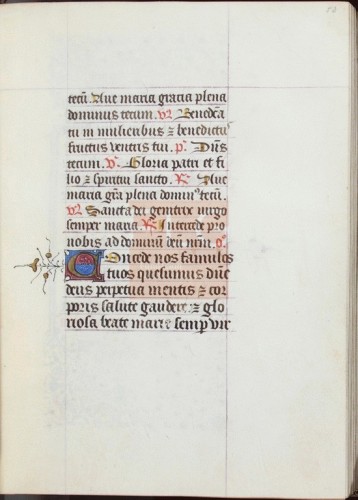 tecū. Aue maria gracia plena
dominus tecum. v̄ Benedcā
tu in mulieribus ⁊ benedictꝰ
fructus ventris tui. p. Dn̄s
tecum. v̄. Gloria patri et fi
lio ⁊ spiritui sancto. R̄. Aue
maria gr̄a plena dominꝰ tecū.
v̄ Sancta dei genitrix uirgo
semper maria. R̄ Intercede pro
nobis ad dominū deū nr̄m. o.
Concede nos famulos
tuos quesumus dn̄e
deus perpetua mentis ⁊ cor
poris salute gaudere: ⁊ glo
riosa beate marie semper vir